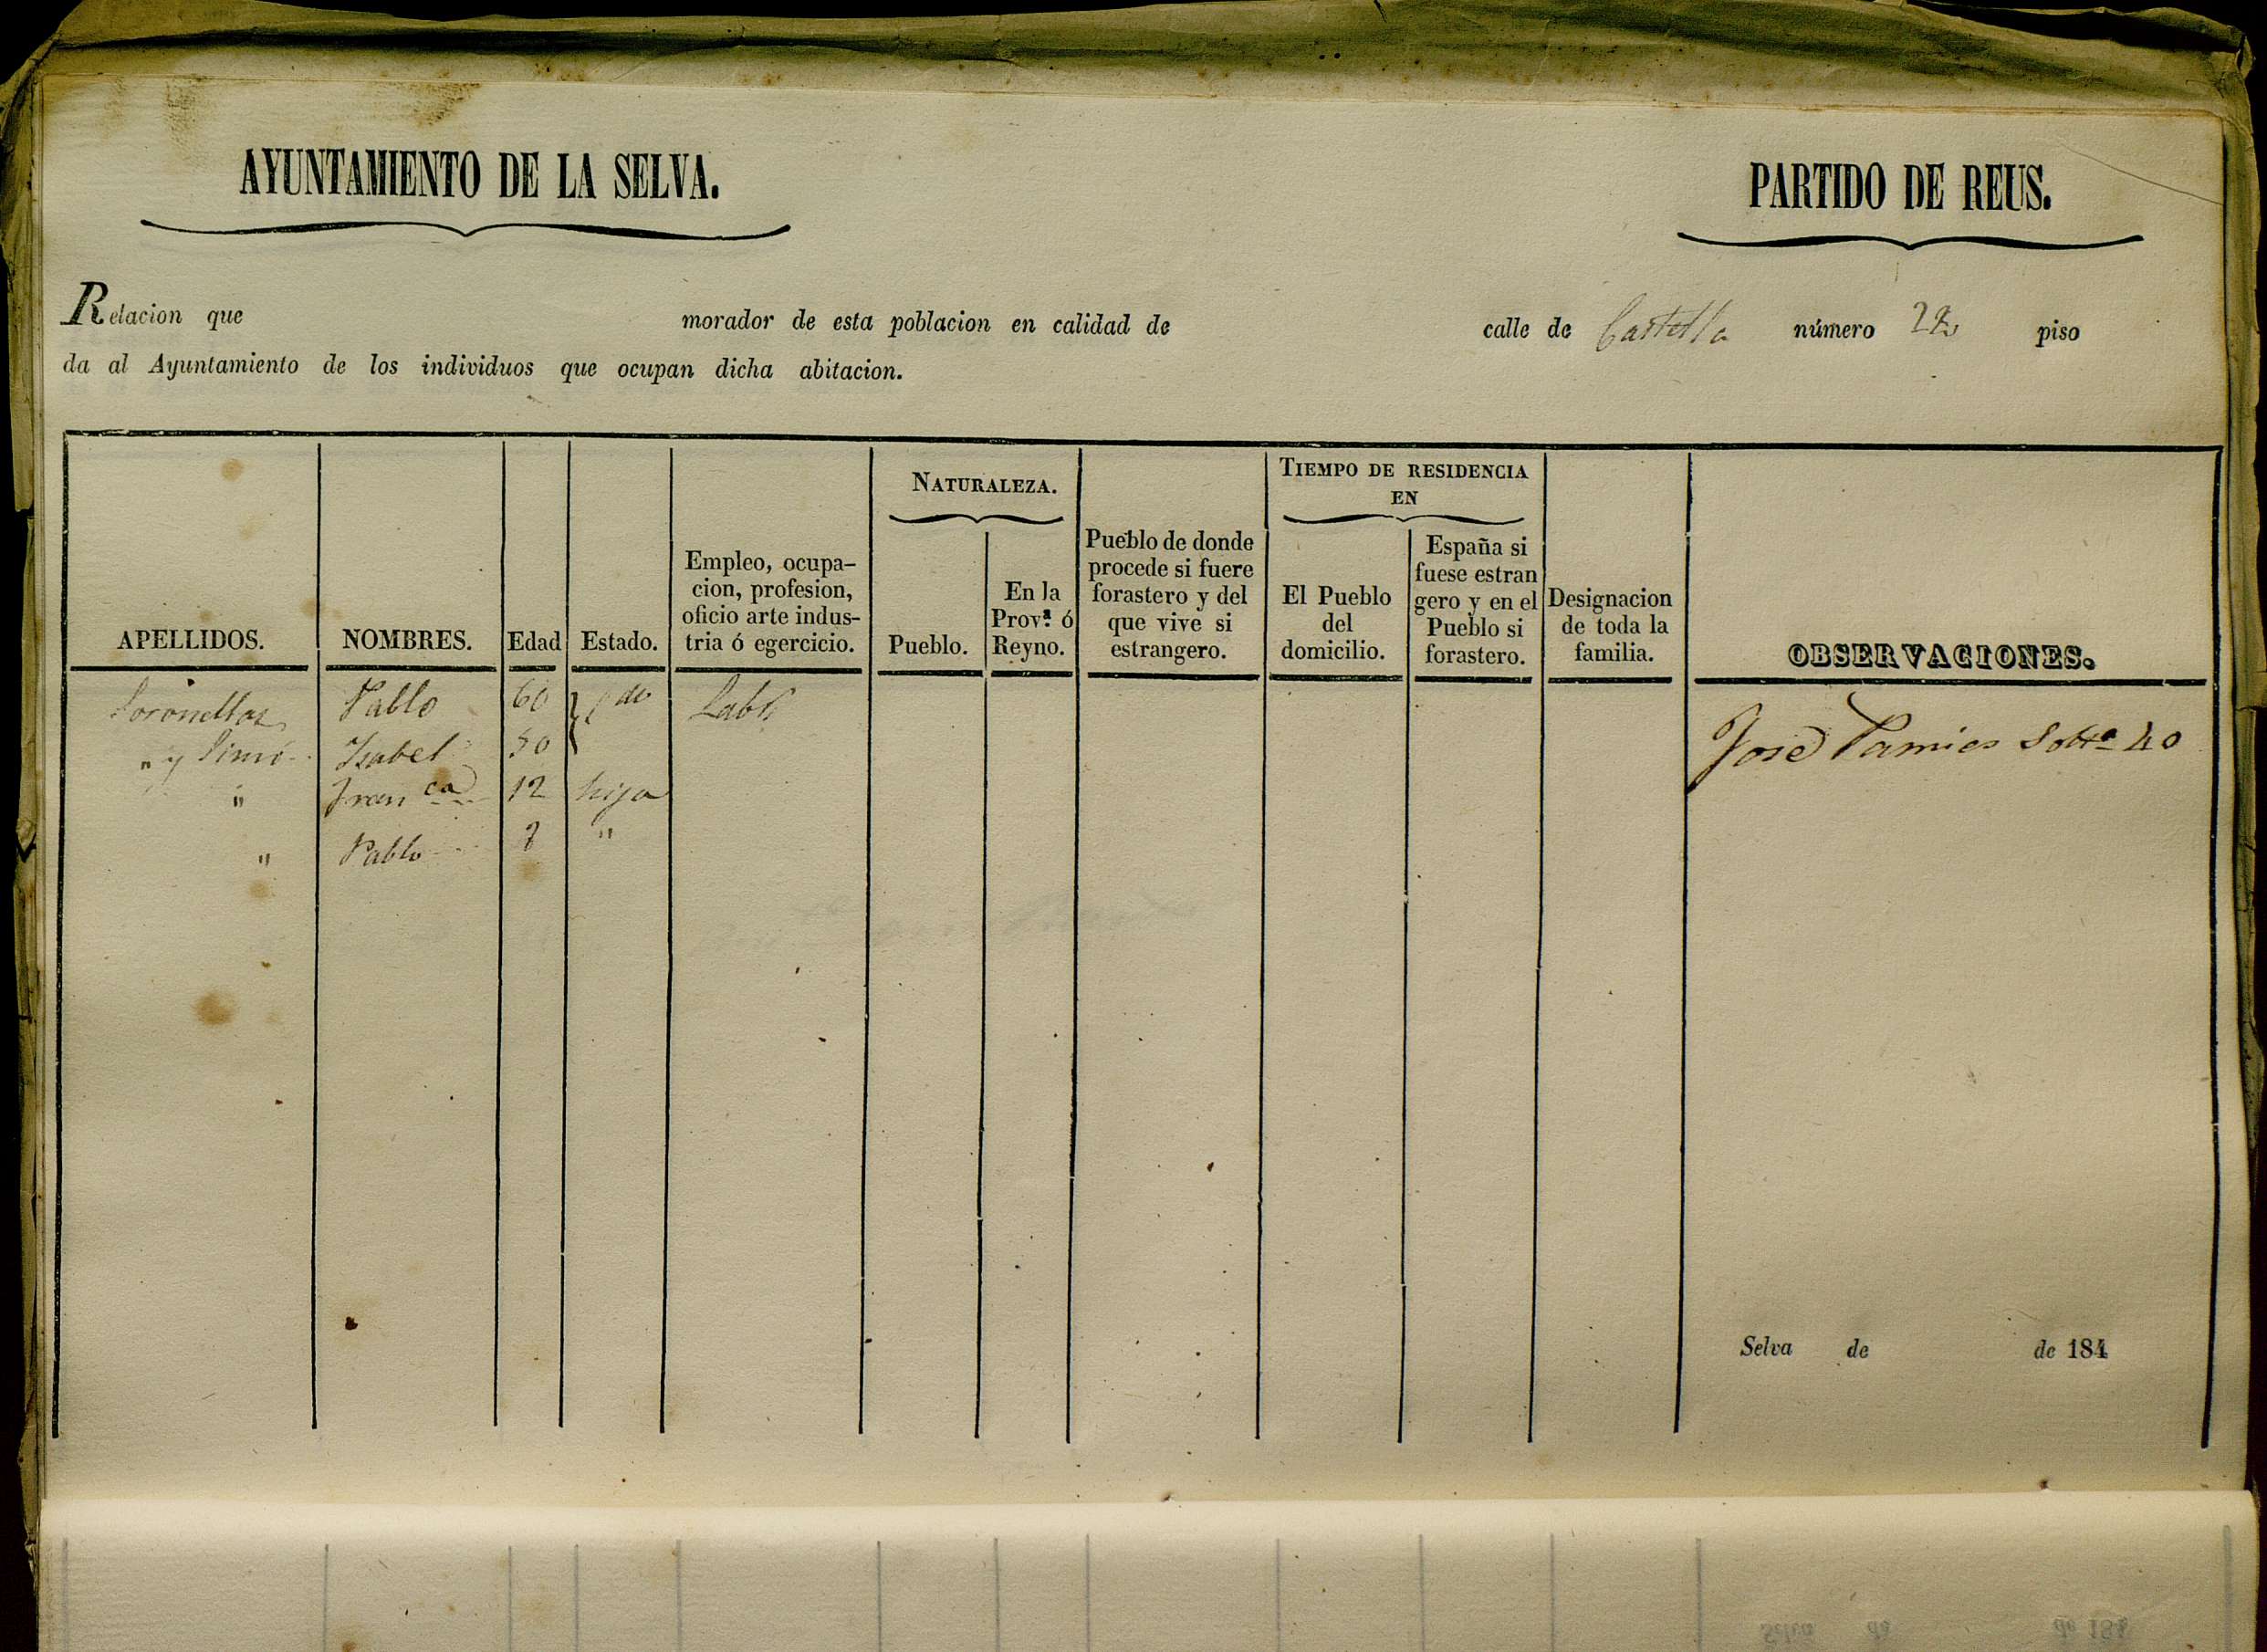 AYUNTAMIENTO DE LA SELVA.
PARTIDO DE REUS.
Relacion que morador de esta poblacion en calidad de calle de Castella número piso
da al Ayuntamiento de los individuos que ocupan dicha abitacion.
APELLIDOS.
NOMBRES.
Edad
Estado.
Empleo, ocupa-
cion, profesion,
oficio arte indus-
tria ó egercicio.
NATURALEZA.
Pueblo.
En la
Prov.ª ó
Reyno.
Pueblo de donde
procede si fuere
forastero y del
que vive si
estrangero.
TIEMPO DE RESIDENCIA
EN
El Pueblo
del
domicilio.
España si
fuese estran
gero y en el
Pueblo si
forastero.
Designacion
de toda la
familia.
OBSERVACIONES.
Soronellas Pablo 60 Labr
" y Simó Isabel 50
" Fran ca 12 hija
" Pablo "
José Pamies 40
Selva de de 184